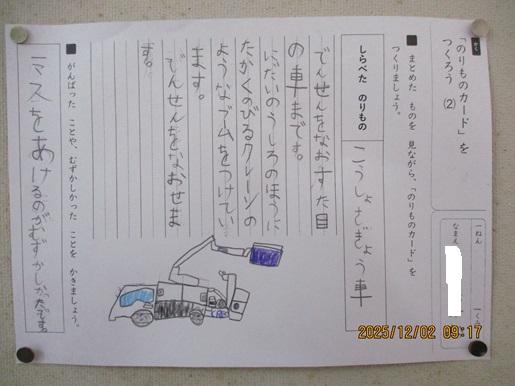 「のりものカード」を
つくろう (2)
一ねん
一くみ
なまえ
■ まとめた ものを 見ながら、「のりものカード」を
つくりましょう。
しらべた のりもの
こうしょさぎょう車
でんせんをなおすた目
の車まです。
にだいのうしろのほうに
たかくのびるクレーンの
ようなブームをつけてい
ます。
でんせんをなおせま
す。
■ がんばった ことや、むずかしかった ことを かきましょう。
マスをあけるのがむずかしかったです。
2025/12/02 09:17